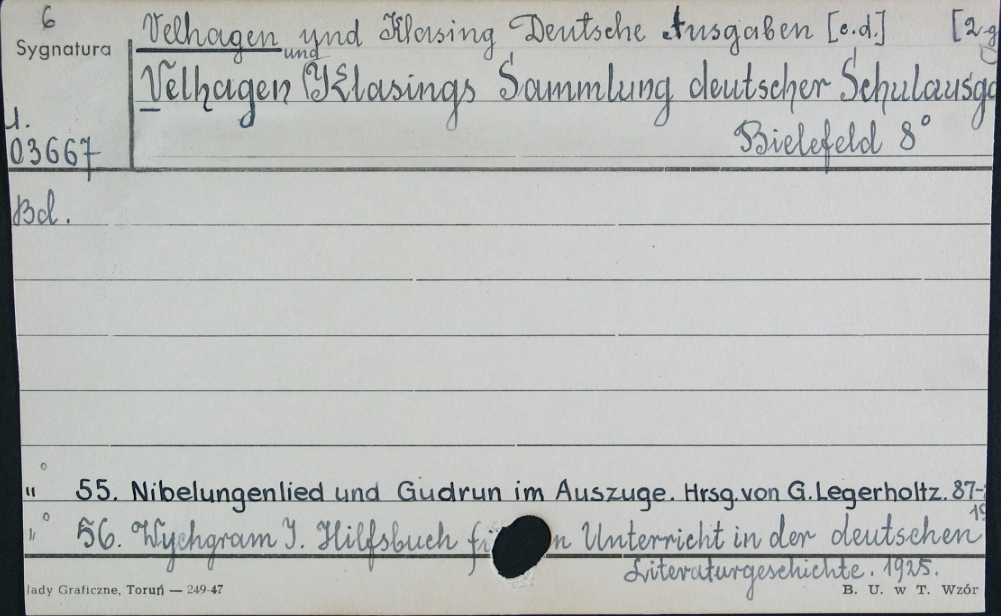 6
Sygnatura
Velhagen ynd Klasing Deutsche Ausgaben [e.d.] [2-g
und
Velhagen Klasings Sammlung deutscher Schulausga
Bielefeld 8°
03667
Bd.
" 55. Nibelungenlied und Gudrun im Auszuge. Hrsg. von G. Legerholtz. 87-
56. Wychgram J. Hilfsbuch fü n Unterricht in der deutschen
Literaturgeschichte. 1925.
lady Graficzne, Toruń — 249-47 B. U. w T. Wzór